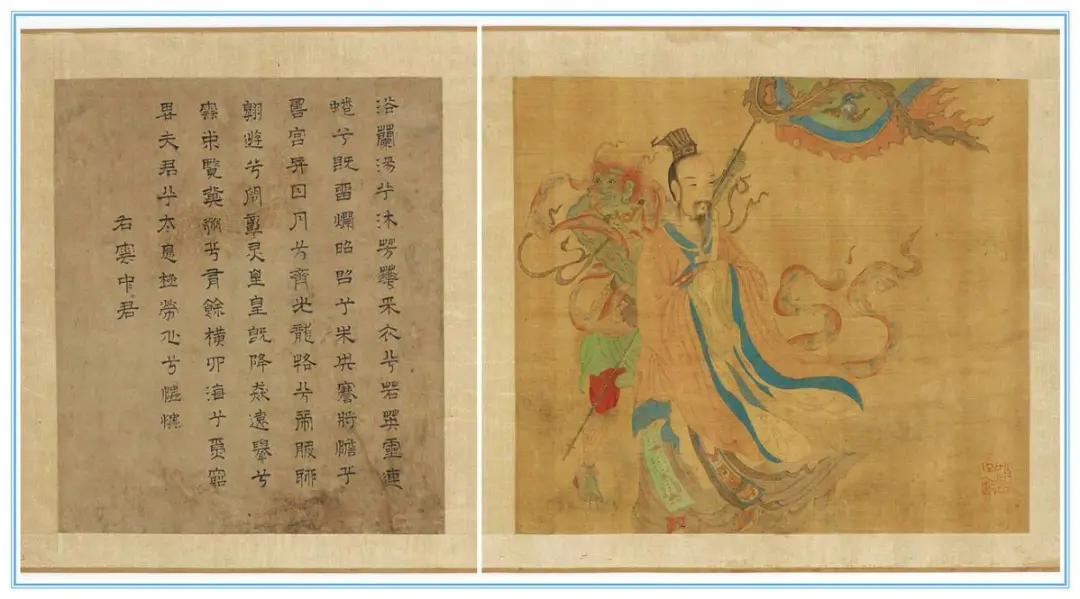 浴蘭湯兮沐芳華采衣兮若英靈連
蜷兮既留爛昭昭兮未央謇將憺兮
壽宮與日月兮齊光龍駕兮帝服聊
翱遊兮周章灵皇皇既降猋遠舉兮
雲中覽冀州兮有餘橫四海兮焉窮
思夫君兮太息極勞心兮
右雲中君